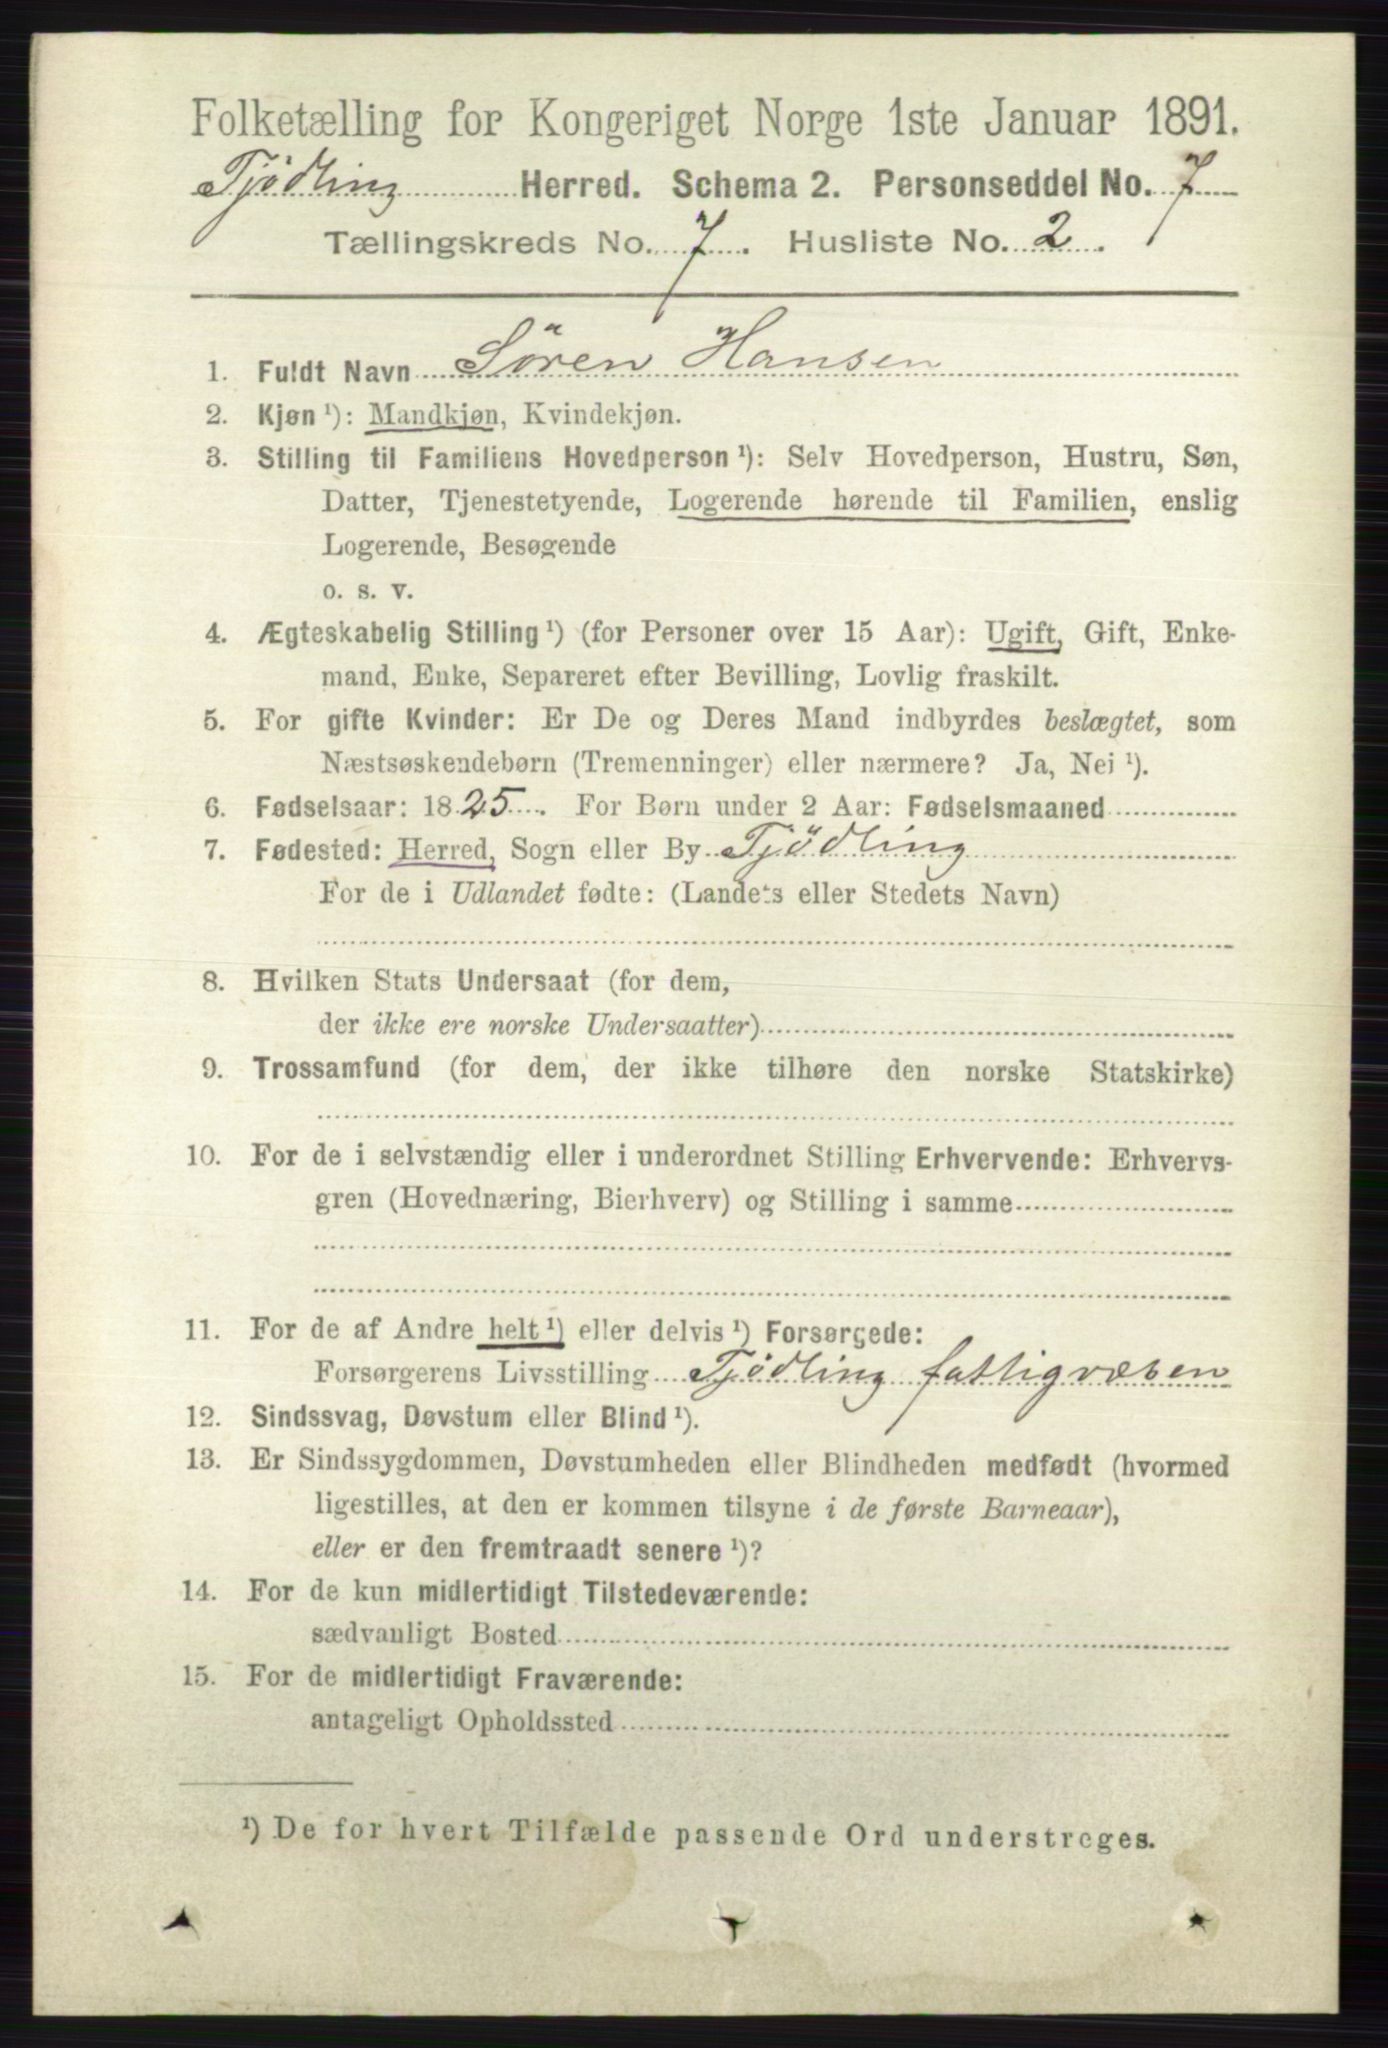 Folketælling for Kongeriget Norge 1ste Januar 1891.
Tjödling Herred. Schema 2. Personseddel No. 7
Tællingskreds No. 7. Husliste No. 2.
1. Fuldt Navn Sören Hansen
2. Kjøn ¹): Mandkjøn, Kvindekjøn.
3. Stilling til Familiens Hovedperson ¹): Selv Hovedperson, Hustru, Søn,
Datter, Tjenestetyende, Logerende hørende til Familien, enslig
Logerende, Besøgende
o. s. v.
4. Ægteskabelig Stilling ¹) (for Personer over 15 Aar): Ugift, Gift, Enke-
mand, Enke, Separeret efter Bevilling, Lovlig fraskilt.
5. For gifte Kvinder: Er De og Deres Mand indbyrdes beslægtet, som
Næstsøskendebørn (Tremenninger) eller nærmere? Ja, Nei ¹).
6. Fødselsaar: 1825. For Børn under 2 Aar: Fødselsmaaned
7. Fødested: Herred, Sogn eller By Tjödling
For de i Udlandet fødte: (Landets eller Stedets Navn)
8. Hvilken Stats Undersaat (for dem,
der ikke ere norske Undersaatter)
9. Trossamfund (for dem, der ikke tilhøre den norske Statskirke)
10. For de i selvstændig eller i underordnet Stilling Erhvervende: Erhvervs-
gren (Hovednæring, Bierhverv) og Stilling i samme
11. For de af Andre helt ¹) eller delvis ¹) Forsørgede:
Forsørgerens Livsstilling Tjödling fattigvæsen
12. Sindssvag, Døvstum eller Blind ¹).
13. Er Sindssygdommen, Døvstumheden eller Blindheden medfødt (hvormed
ligestilles, at den er kommen tilsyne i de første Barneaar),
eller er den fremtraadt senere ¹)?
14. For de kun midlertidigt Tilstedeværende:
sædvanligt Bosted
15. For de midlertidigt Fraværende:
antageligt Opholdssted
¹) De for hvert Tilfælde passende Ord understreges.